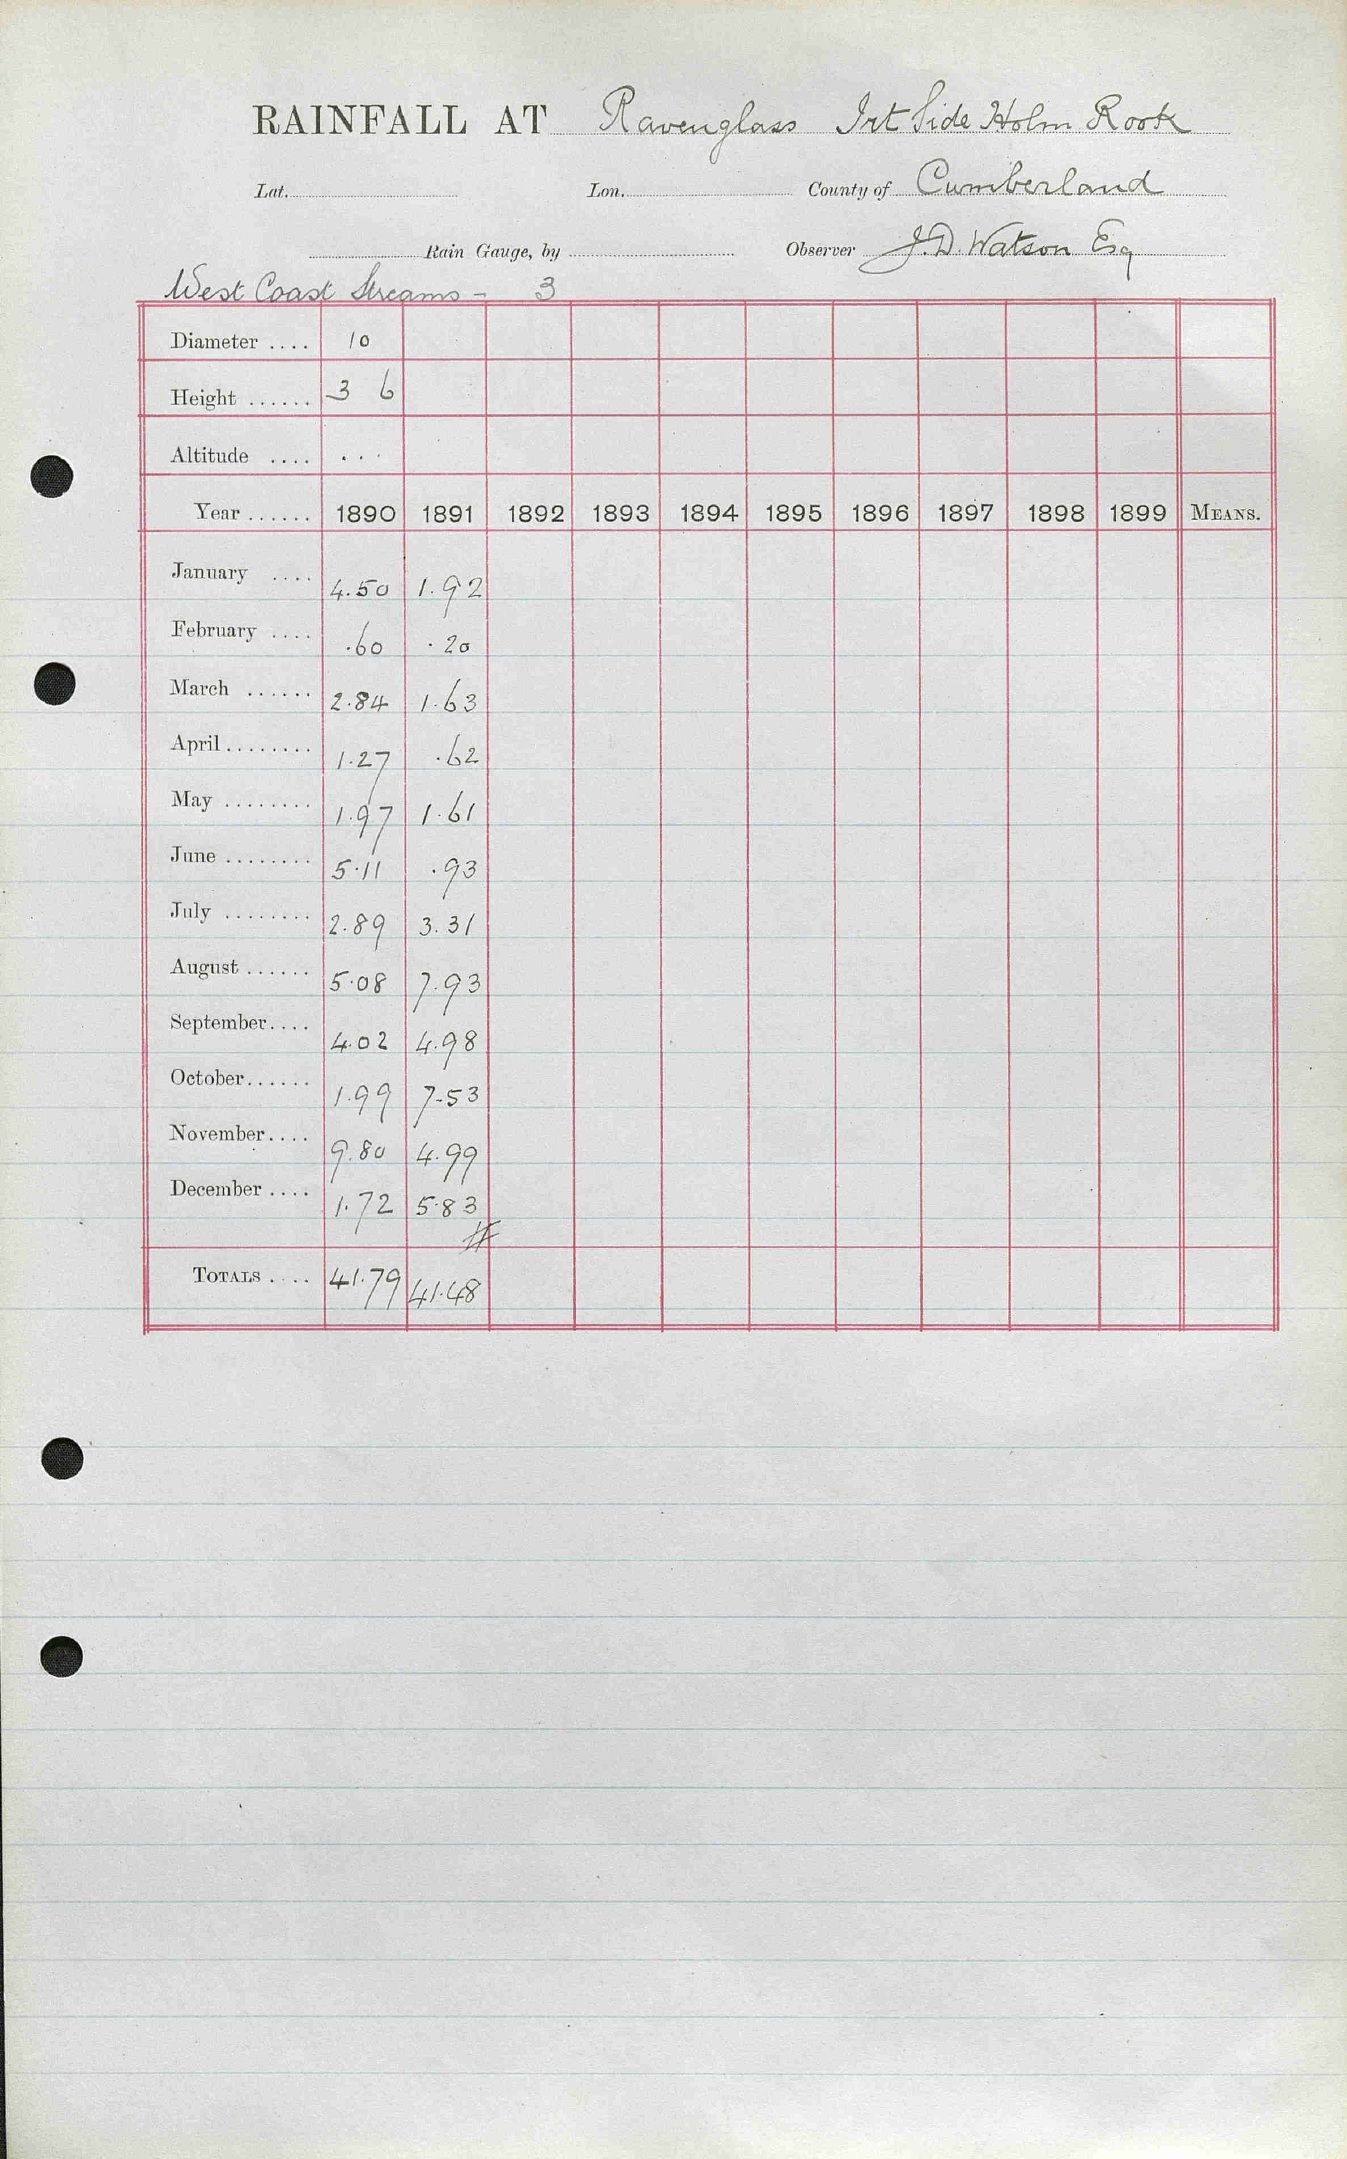 RAINFALL AT Ravenglass Irt Side Holm Rook
Lat. Lon. County of Cumberland
Rain Gauge, by Observer J.D. Watson Esq
West Coast Streams - 3
Diameter .... 10
Height ...... 3 6
Altitude .... ...
Year ...... 1890 1891 1892 1893 1894 1895 1896 1897 1898 1899 MEANS.
January .... 4.50 1.92
February .... .60 .20
March ...... 2.84 1.63
April ........ 1.27 .62
May ........ 1.97 1.61
June ........ 5.11 .93
July ........ 2.89 3.31
August ...... 5.08 7.93
September.... 4.02 4.98
October...... 1.99 7.53
November.... 9.80 4.99
December .... 1.72 5.83
#
TOTALS .... 41.79 41.48